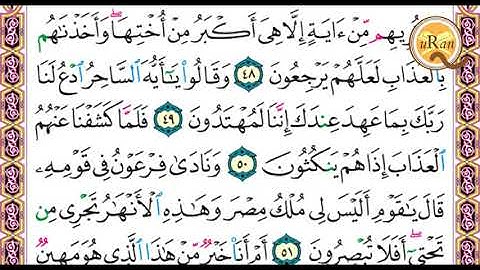 نُرِيهِم مِّنْ ءَايَةٍ إِلَّا هِىَ أَكْبَرُ مِنْ أُخْتِهَا ۖ وَأَخَذْنَٰهُم
بِالْعَذَابِ لَعَلَّهُمْ يَرْجِعُونَ ٤٨ وَقَالُوا۟ يَٰٓأَيُّهَ السَّاحِرُ ادْعُ لَنَا
رَبَّكَ بِمَا عَهِدَ عِندَكَ إِنَّنَا لَمُهْتَدُونَ ٤٩ فَلَمَّا كَشَفْنَا عَنْهُمُ
الْعَذَابَ إِذَا هُمْ يَنكُثُونَ ٥٠ وَنَادَىٰ فِرْعَوْنُ فِى قَوْمِهِۦ
قَالَ يَٰقَوْمِ أَلَيْسَ لِى مُلْكُ مِصْرَ وَهَٰذِهِ الْأَنْهَٰرُ تَجْرِى مِن
تَحْتِىٓ ۖ أَفَلَا تُبْصِرُونَ ٥١ أَمْ أَنَا۠ خَيْرٌ مِّنْ هَٰذَا الَّذِى هُوَ مَهِينٌ
uRan